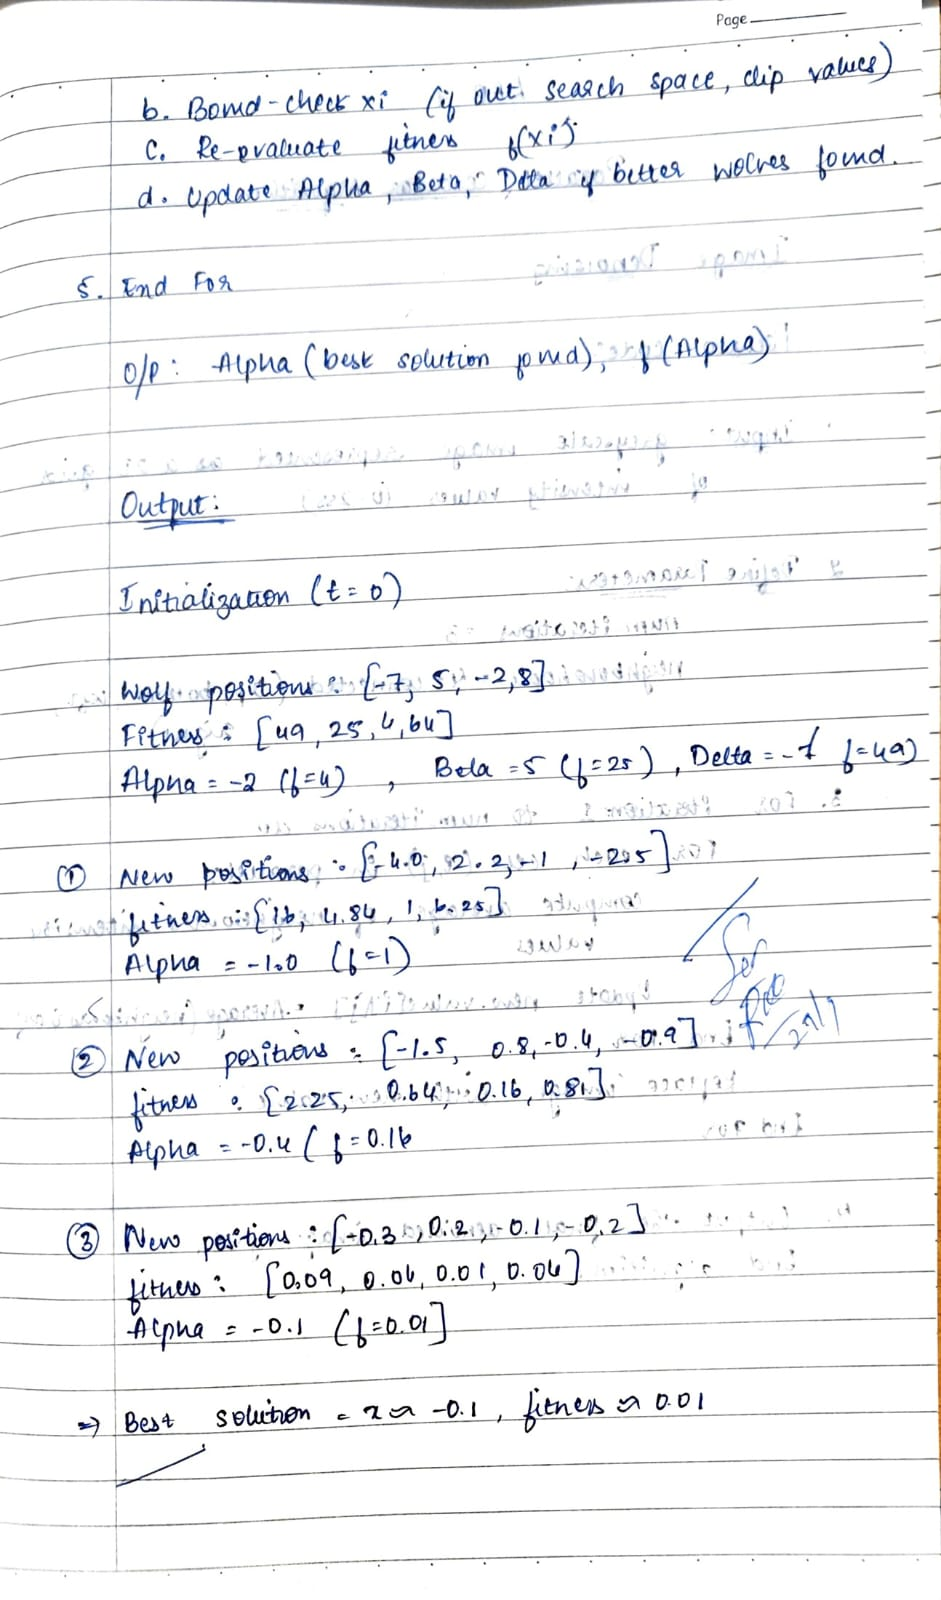 Page
b. Bomd-check xi (if out search space, clip values)
c. Re-evaluate fitness f(xi)
d. Update Alpha, Beta, Delta if better wolves found.
5. End For
O/P: Alpha (best solution found), f(Alpha)
Output:
Initialization (t=0)
Wolf positions: [-7, 5, -2, 8]
Fitness: [49, 25, 4, 64]
Alpha = -2 (f=4), Beta = 5 (f=25), Delta = -7 f=49)
① New positions: [-4.0, 2.2, -1, -2.5]
fitness: [16, 4.84, 1, 6.25]
Alpha = -1.0 (f=1)
② New positions: [-1.5, 0.8, -0.4, -0.9]
fitness: [2.25, 0.64, 0.16, 0.81]
Alpha = -0.4 (f=0.16
③ New positions: [-0.3, 0.2, -0.1, -0.2]
fitness: [0.09, 0.04, 0.01, 0.04]
Alpha = -0.1 (f=0.01]
⇒ Best solution = x ≈ -0.1, fitness ≈ 0.01